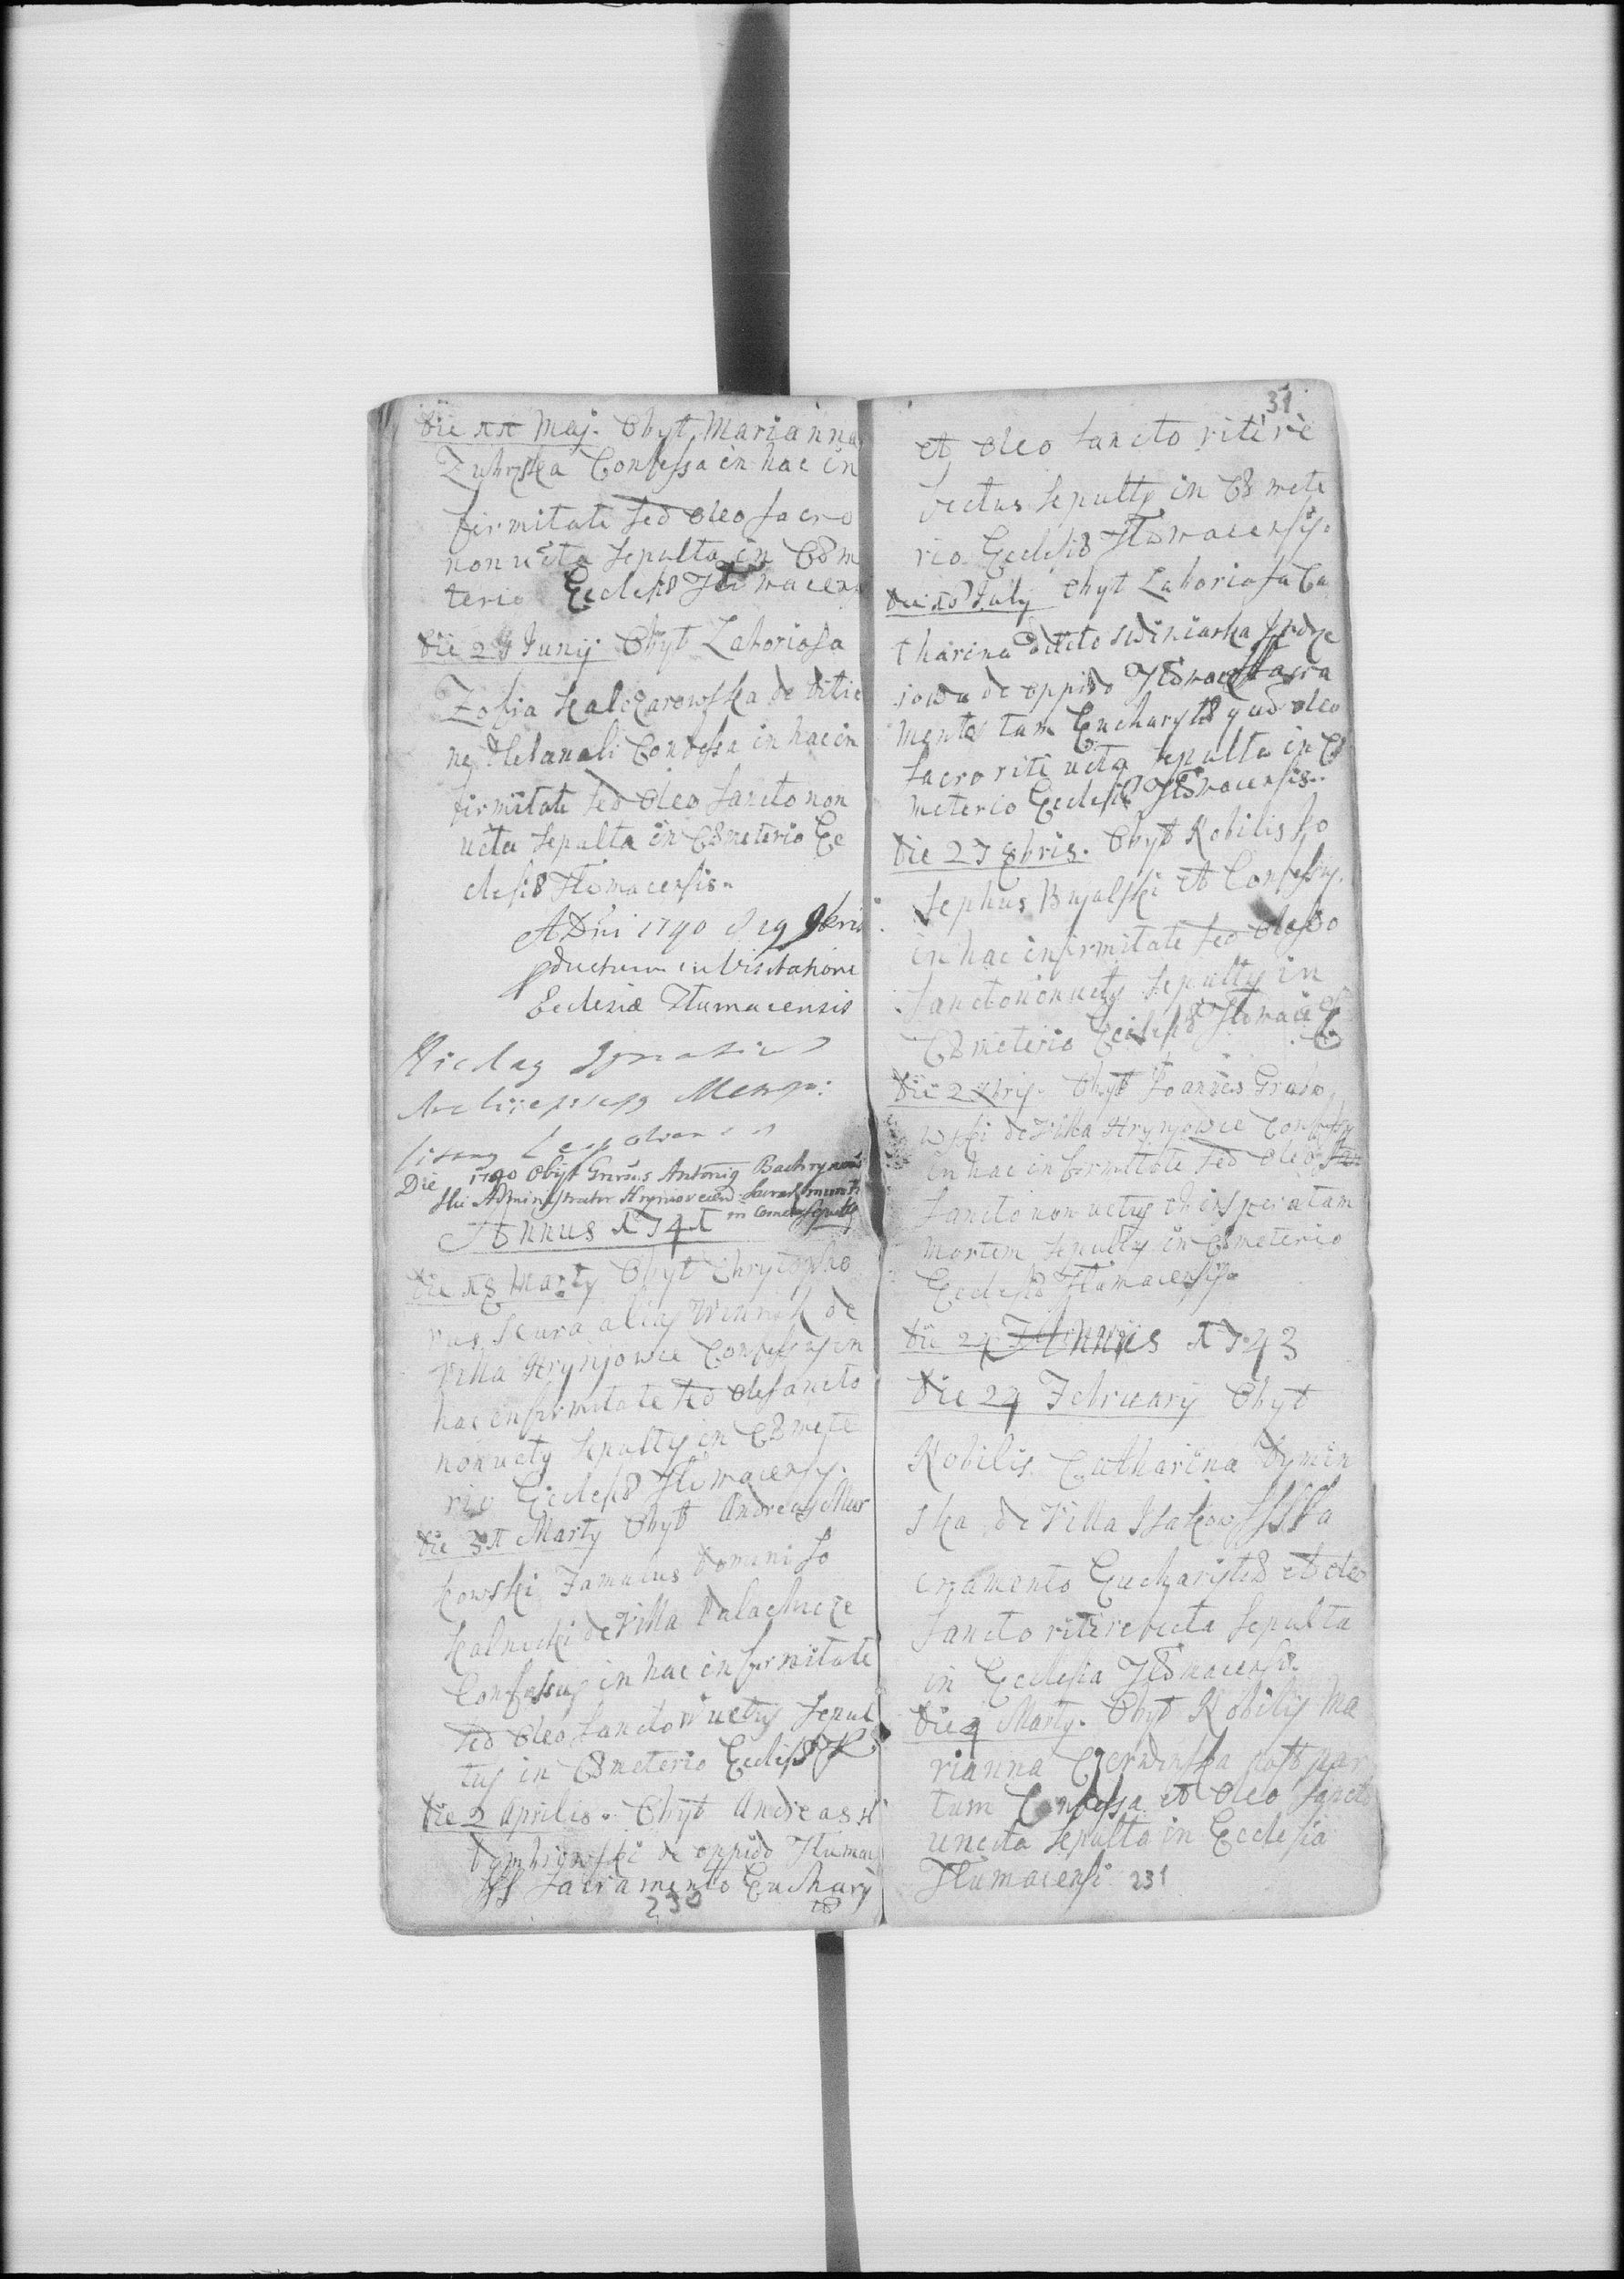 Die 11 Maj. Obyt Marianna
Zubrzska Confessa in hac in
firmitate sed oleo sacro
non ucta sepulta in Coem
terio Ecclesiæ Tlumacens
Die 24 Junij Obyt Laboriosa
Zofia Kalczarowska de ditio
ne Confessa in hac in
firmitate sed oleo sancto non
ucta sepulta in Cœmeterio Ec
clesiæ Tlumacensis.
A Dni 1740 d 19 9bris
pductum in Visitatione
Ecclesiæ Tlumacensis
Nicolaus Ignatius
Archieppus Metrop:
Leopolien
Die 1740 Obijt Grnsus Antonig
Hic Administrator Sacramentis
in Cemete Sepults
Annus 1741
Die 18 Marty Obyt Chrystopho
rus Scura alias Winnik de
Villa Hrynjowce Confessus in
hac infirmitate sed oleo sancto
non ucty sepultus in Cœmete
rio Ecclesiæ Tlumacensys.
Die 31 Marty Obyt Andreas Mar
kowski Famulus Domini So
kalnicki de Villa Palachicze
Confessus in hac infirmitate
sed oleo sancto n uctus sepul
tus in Cœmeterio Ecclesiæ
Die 2 Aprilis. Obyt Andreas
Dombrowski de oppido Tlumac
SSS Sacramento Euchary
230
31
et oleo sancto rite re
fectus sepultus in Cœmete
rio Ecclesiæ Tlumacensis.
Die 10 July Obyt Laboriosa Ca
tharina dicto Swiniarka
iowa de oppido Tlumacz Sacra
mentes tam Eucharystiæ quo oleo
sacro rite ucta sepulta in Cœ
meterio Ecclesiæ Tlumacensis.
Die 27 8bris. Obyt Nobilis Jo
sephus Bujalski et Confessus.
in hac infirmitate sed oleo
sancto non uctus sepultus in
Cœmeterio Ecclesiæ Tlumac
Die 2 Xbris. Obyt Joannes Grabo
wski de Villa Hrynjowce Confessus
in hac infirmitate sed oleo
sancto non uctus ob insperatam
mortem sepultus in Cœmeterio
Ecclesiæ Tlumacensis
Die 24 Annus 1743
Die 24 February Obyt
Nobilis Catharina Dymin
ska de Villa Isakow SSS Sa
cramento Eucharistiæ et oleo
sancto rite refecta sepulta
in Ecclesia Tlumacensi.
Die 4 Marty. Obyt Nobilis Ma
rianna Czerwinska post par
tum Confessa et oleo sancto
uncta sepulta in Ecclesia
Tlumacensi 231